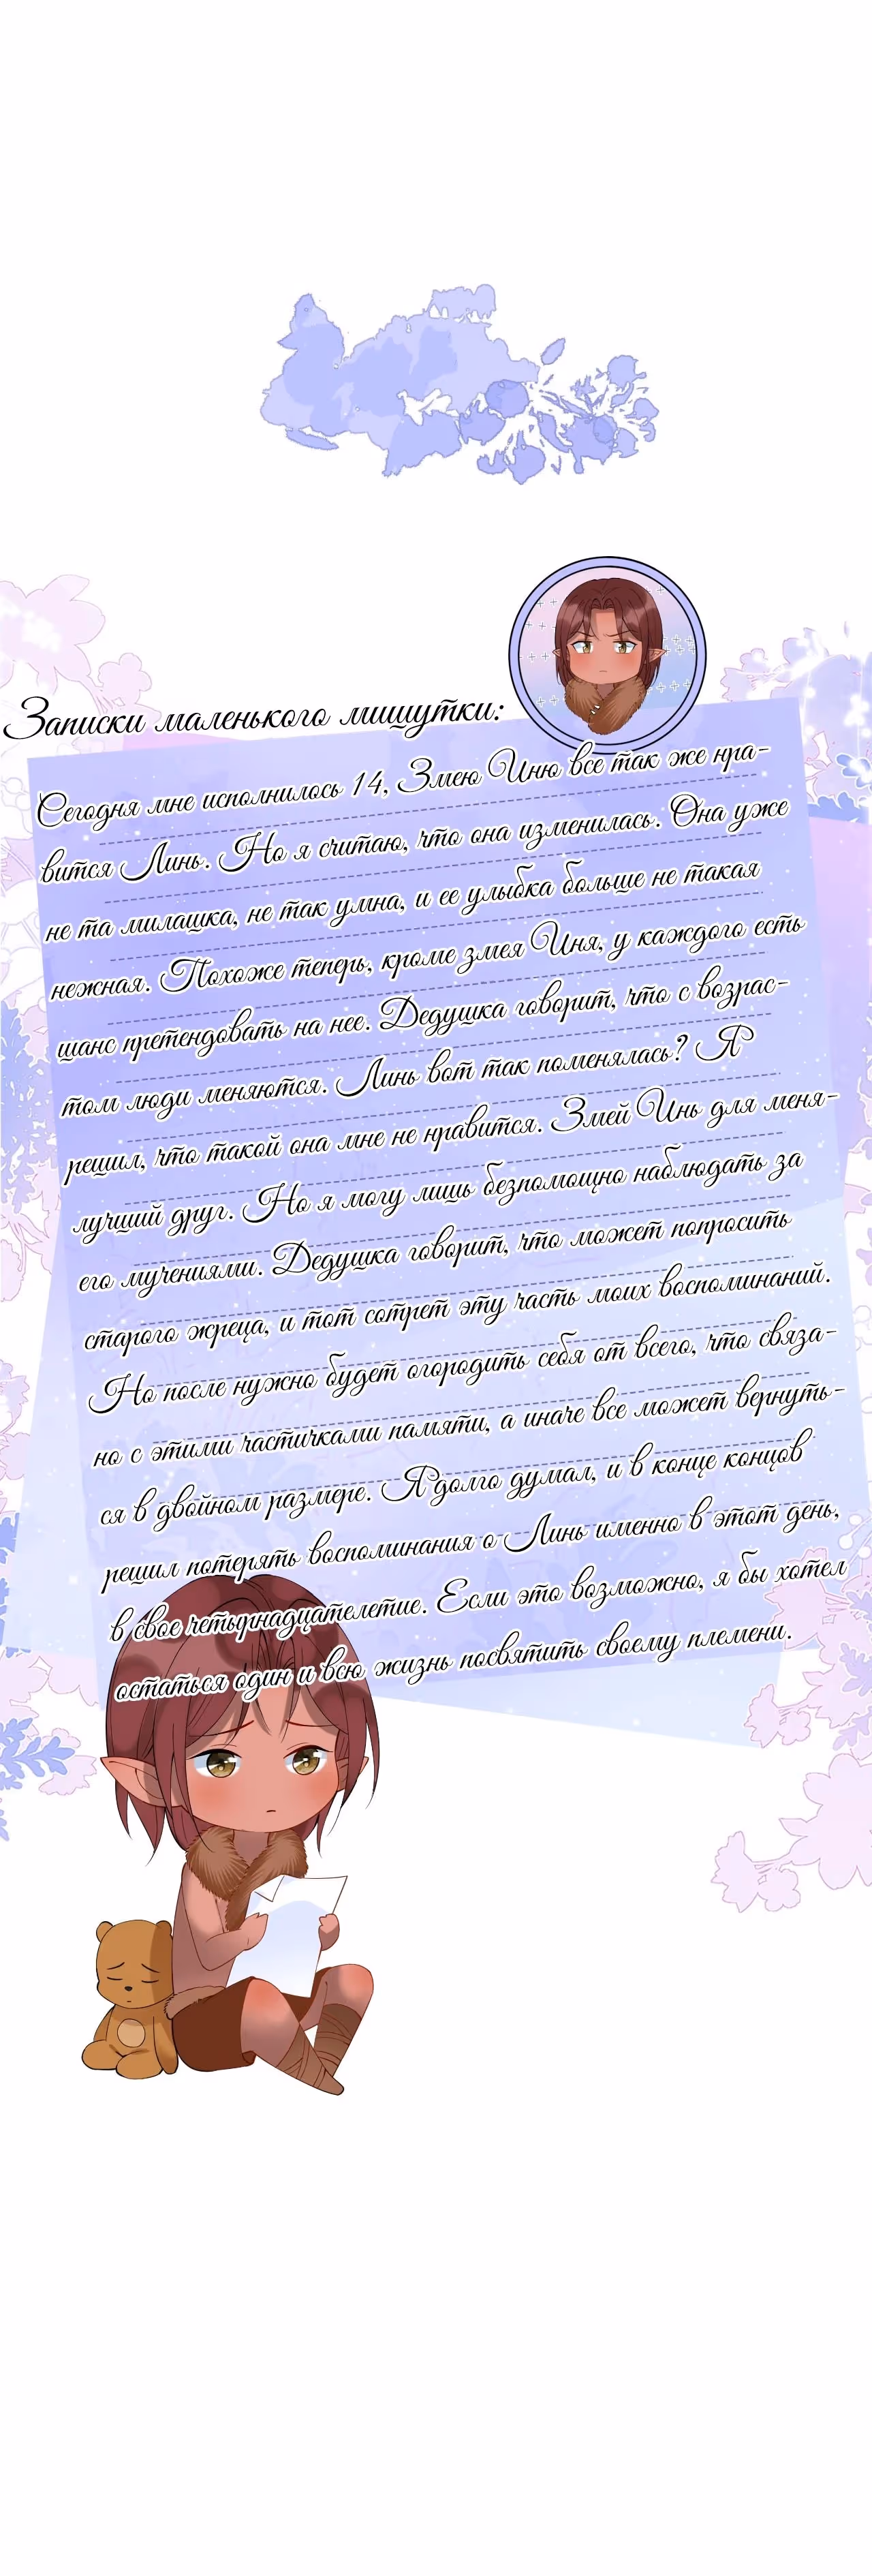 Записки маленького мишутки:
Сегодня мне исполнилось 14, Змею Иню все так же нра-
вится Линь. Но я считаю, что она изменилась. Она уже
не та милашка, не так умна, и ее улыбка больше не такая
нежная. Похоже теперь, кроме змея Иня, у каждого есть
шанс претендовать на нее. Дедушка говорит, что с возрас-
том люди меняются. Линь вот так поменялась? Я
решил, что такой она мне не нравится. Змей Инь для меня-
лучший друг. Но я могу лишь безпомощно наблюдать за
его мучениями. Дедушка говорит, что может попросить
старого жреца, и тот сотрет эту часть моих воспоминаний.
Но после нужно будет огородить себя от всего, что связа-
но с этими частичками памяти, а иначе все может вернуть-
ся в двойном размере. Я долго думал, и в конце концов
решил потерять воспоминания о Линь именно в этот день,
в свое четырнадцателетие. Если это возможно, я бы хотел
остаться один и всю жизнь посвятить своему племени.